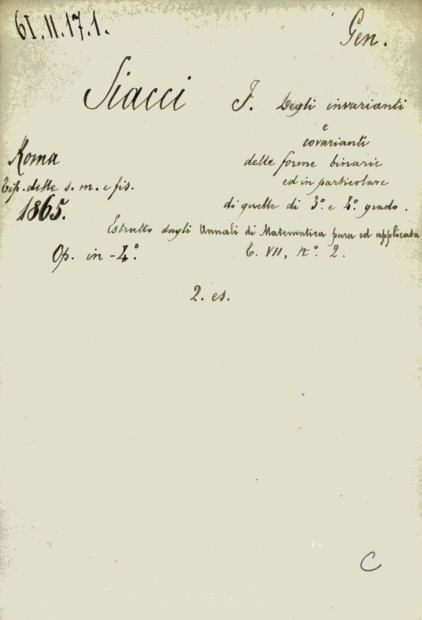 61.II.17.1.
Gen.
Siacci F. Degli invarianti
e
covarianti
Roma
delle forme binarie
Tip. delle s. m. e fis.
ed in particolare
1865.
di quelle di 3° e 4° grado.
Estratto dagli Annali di Matematica pura ed applicata
Op. in-4°.
T. VII, n°. 2.
2. es.
C